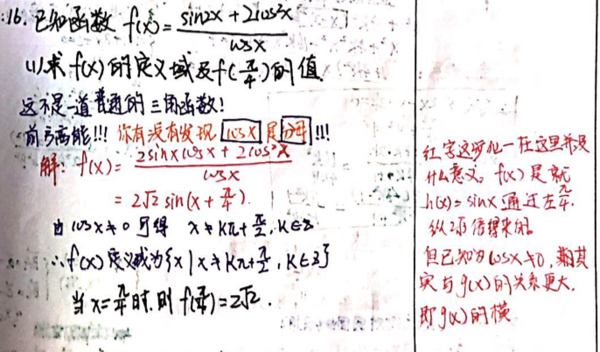 16. 已知函数 f(x) = (sin2x + 2cos²x) / cosx
(1) 求 f(x) 的定义域及 f(π/4) 的值
这不是一道普通的三角函数!
前方高能!!! 你有没有发现 cosx 是分母!!!
解: f(x) = (2sinxcosx + 2cos²x) / cosx
= 2√2 sin(x + π/4).
由 cosx ≠ 0 可得 x ≠ kπ + π/2, k∈Z
∴ f(x) 定义域为 {x | x ≠ kπ + π/2, k∈Z}
当 x = π/4 时, 则 f(π/4) = 2√2.
红字这步化一在这里并没
什么意义, f(x) 是就
h(x) = sinx 通过左π/4.
纵 2√2 倍得来的.
但已知的 cosx ≠ 0, 其
实与 g(x) 的关系更大,
即 g(x) 的横